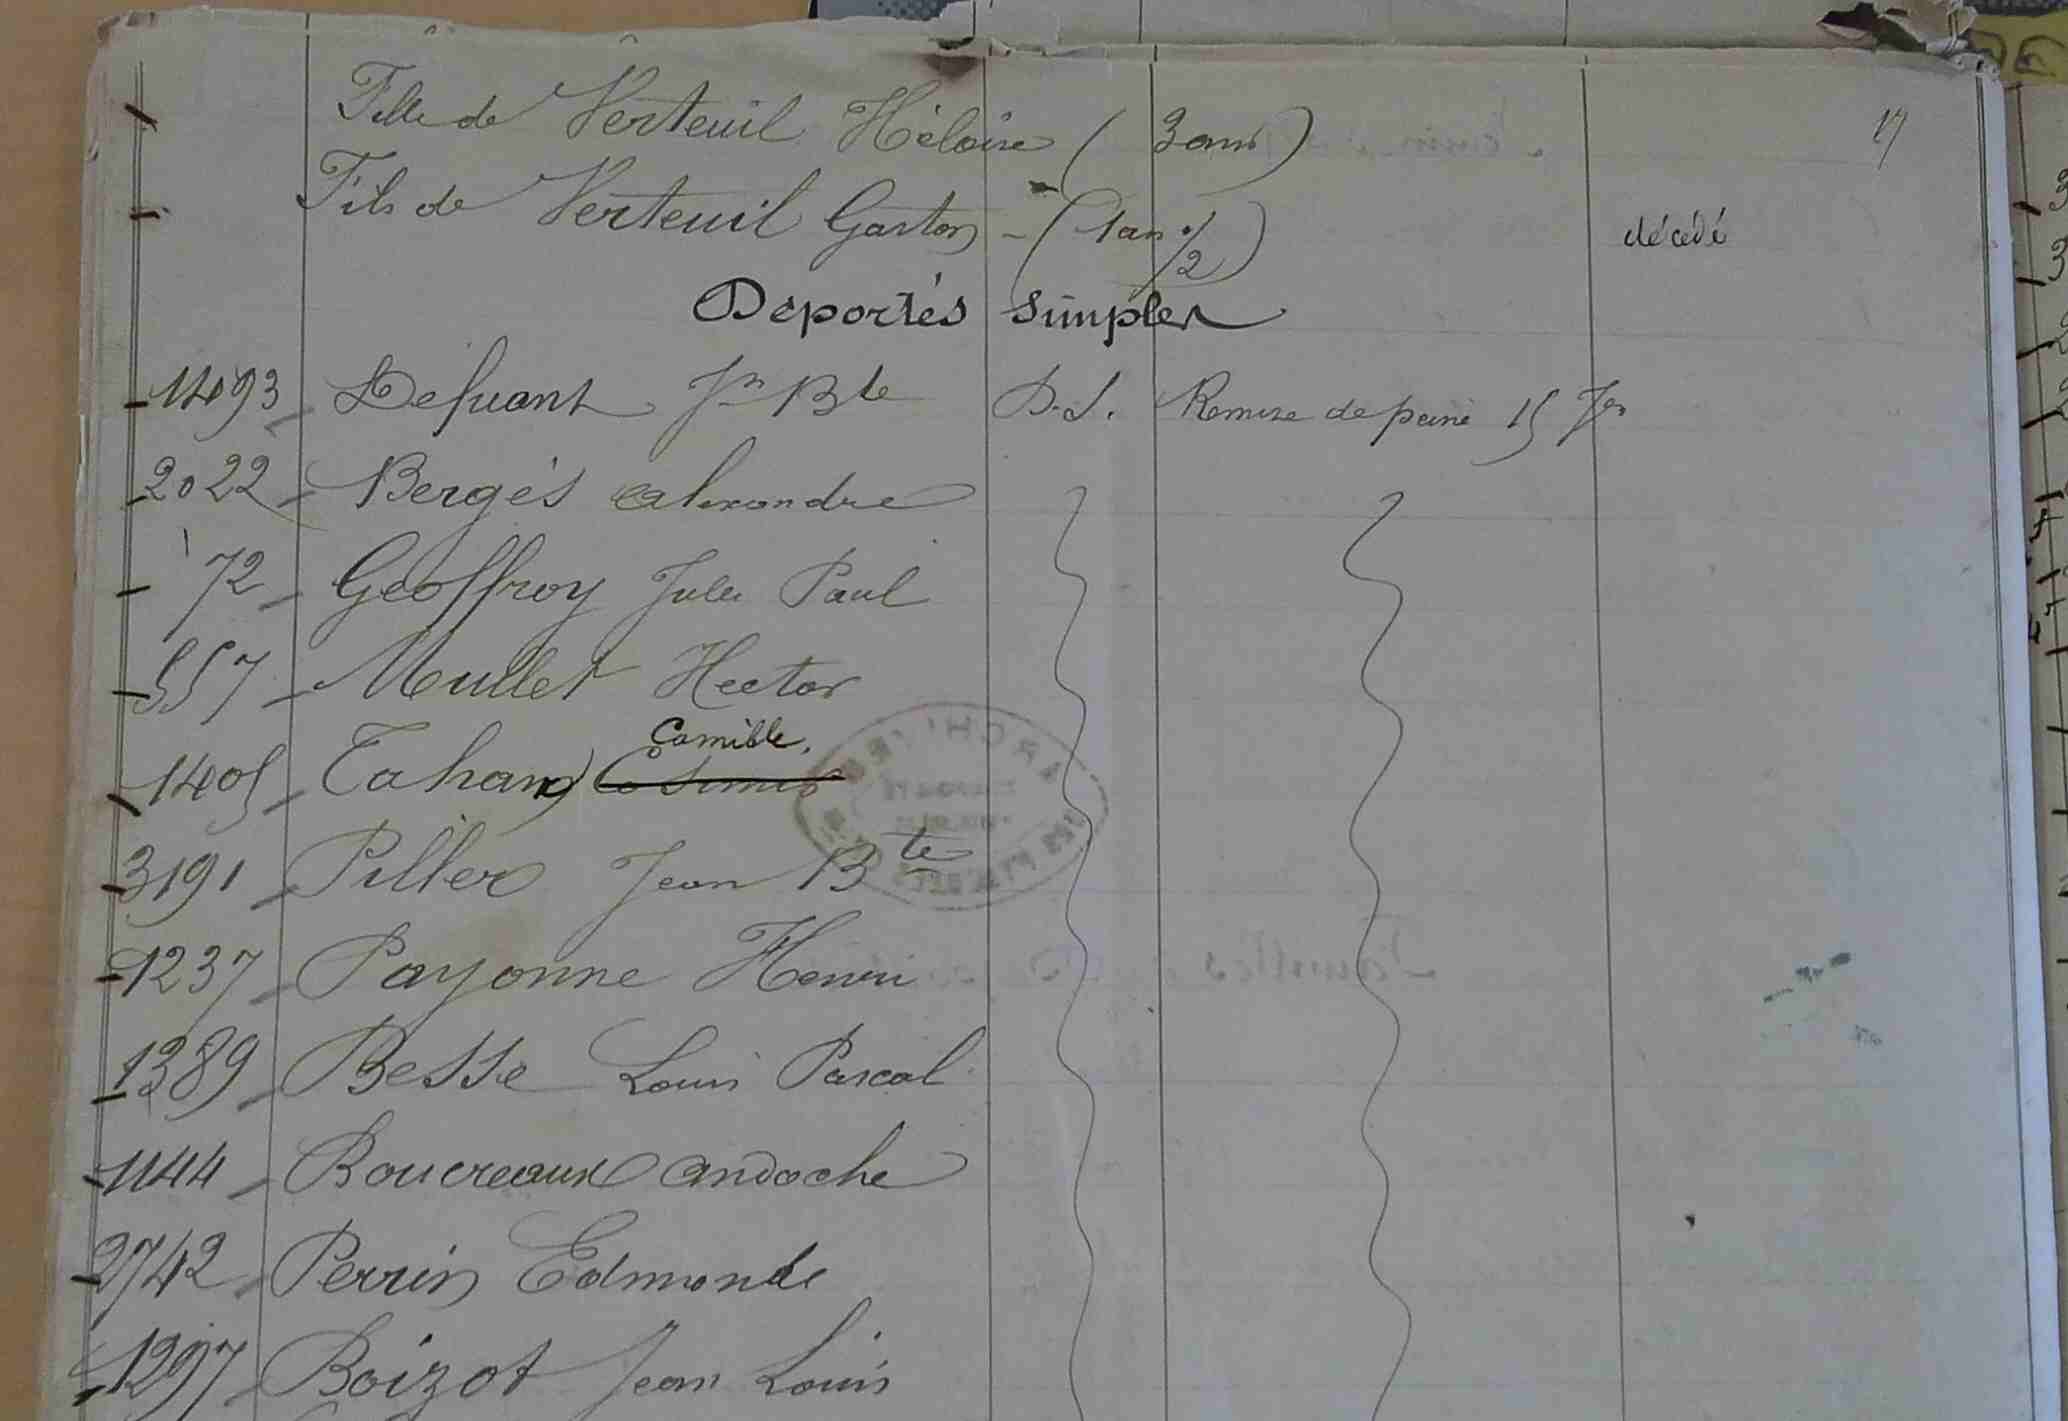 17
Fille de Verteuil Héloïse (3 ans)
Fils de Verteuil Gaston - (1 an 1/2) décédé
Déportés Simples
1493 Defuant Jn Bte D.S. Remise de peine 15 Jer
2022 Bergès Alexandre
72 Geoffroy Jules Paul
557 Mullet Hector
Camille.
1405 Tahan
3191 Piller Jean Bte
1237 Payonne Henri
1389 Besse Louis Pascal
1144 Boucreaux Andoche
2742 Perrin Edmond
1297 Boizot Jean Louis
ARCHIVES